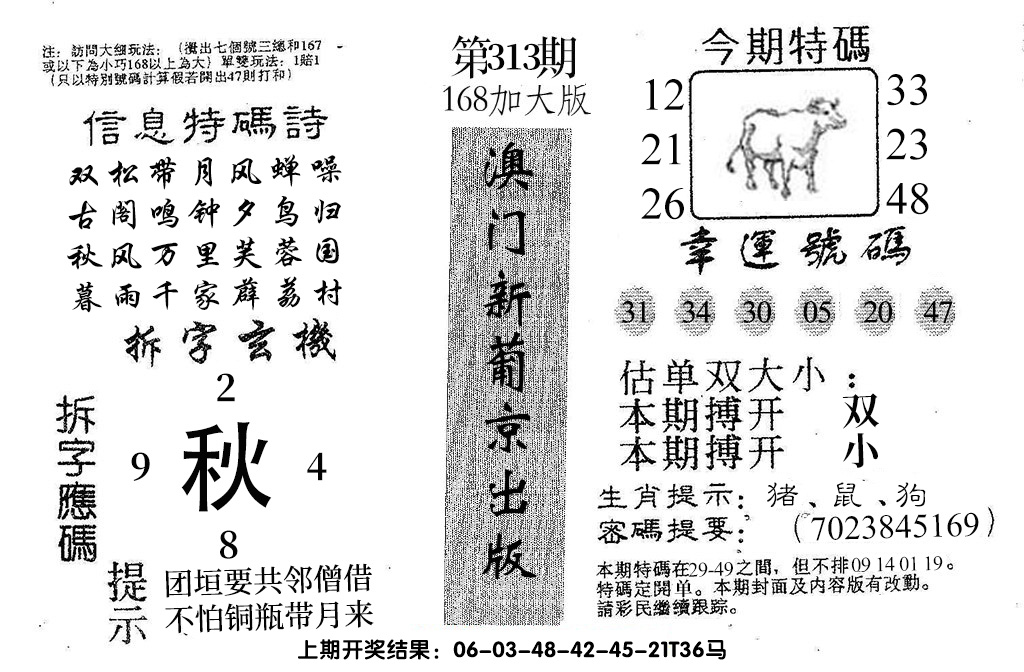 注：訪問大细玩法：（攪出七個號三總和167
或以下為小巧168以上為大）單雙玩法：1賠1
（只以特別號碼計算假若開出47則打和）
信息特碼詩
双松带月风蝉噪
古阁鸣钟夕鸟归
秋风万里芙蓉国
暮雨千家薜荔村
拆字玄機
拆字應碼
2
9 秋 4
8
提示
团垣要共邻僧借
不怕铜瓶带月来
第313期
168加大版
澳门新葡京出版
今期特碼
12 33
21 23
26 48
幸運號碼
31 34 30 05 20 47
估单双大小：
本期搏开 双
本期搏开 小
生肖提示：猪、鼠、狗
密碼提要：（7023845169）
本期特碼在29-49之間，但不排09 14 01 19。
特碼定開单。本期封面及内容版有改動。
請彩民繼續跟踪。
上期开奖结果：06-03-48-42-45-21T36马